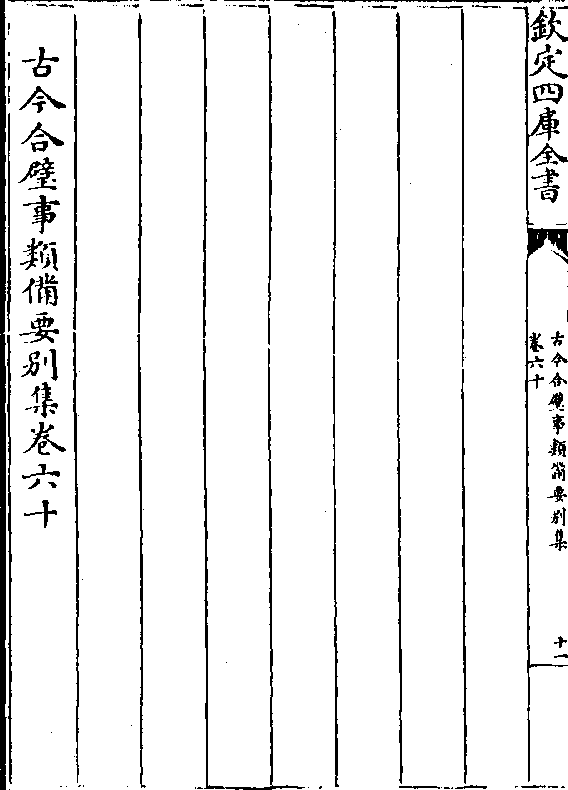 欽定四庫全書
古今合璧事類備要別集
卷六十
十一
古今合璧事類備要別集卷六十